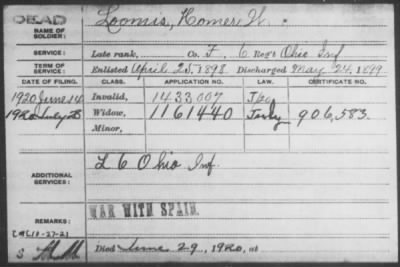 DEAD
NAME OF SOLDIER: Loomis, Homer W.
SERVICE: Late rank, Co. F, 6 Reg't Ohio Inf
TERM OF SERVICE: Enlisted April 25, 1898 Discharged May 24, 1899
DATE OF FILING. CLASS. APPLICATION NO. LAW. CERTIFICATE NO.
1920 June 14 Invalid, 1433007
1920 July 28 Widow, 1161440 906,583.
Minor,
ADDITIONAL SERVICES: L 6 Ohio Inf.
WAR WITH SPAIN.
REMARKS:
Died June 29, 1920, at